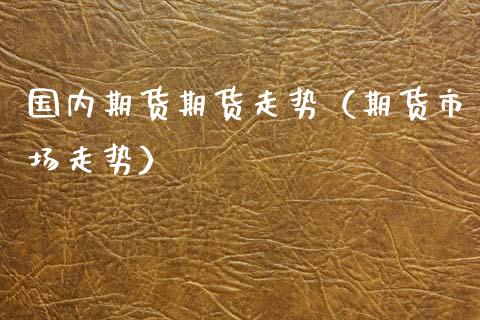 国内期货期货走势（期货市
场走势）